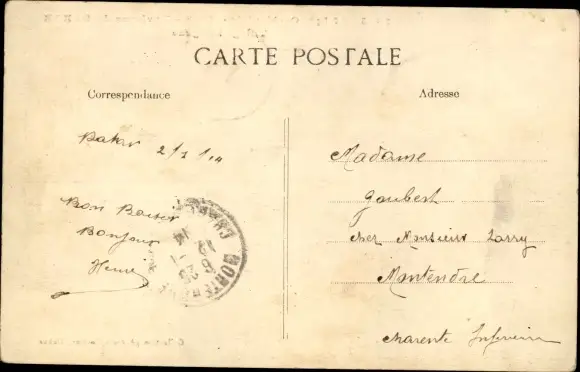 CARTE POSTALE
Correspondance
Adresse
Dakar 2/1/14
Bon Baiser
Bonjour
Madame
Gaubert
chez Monsieur Larry
Montendre
Charente Inferieure